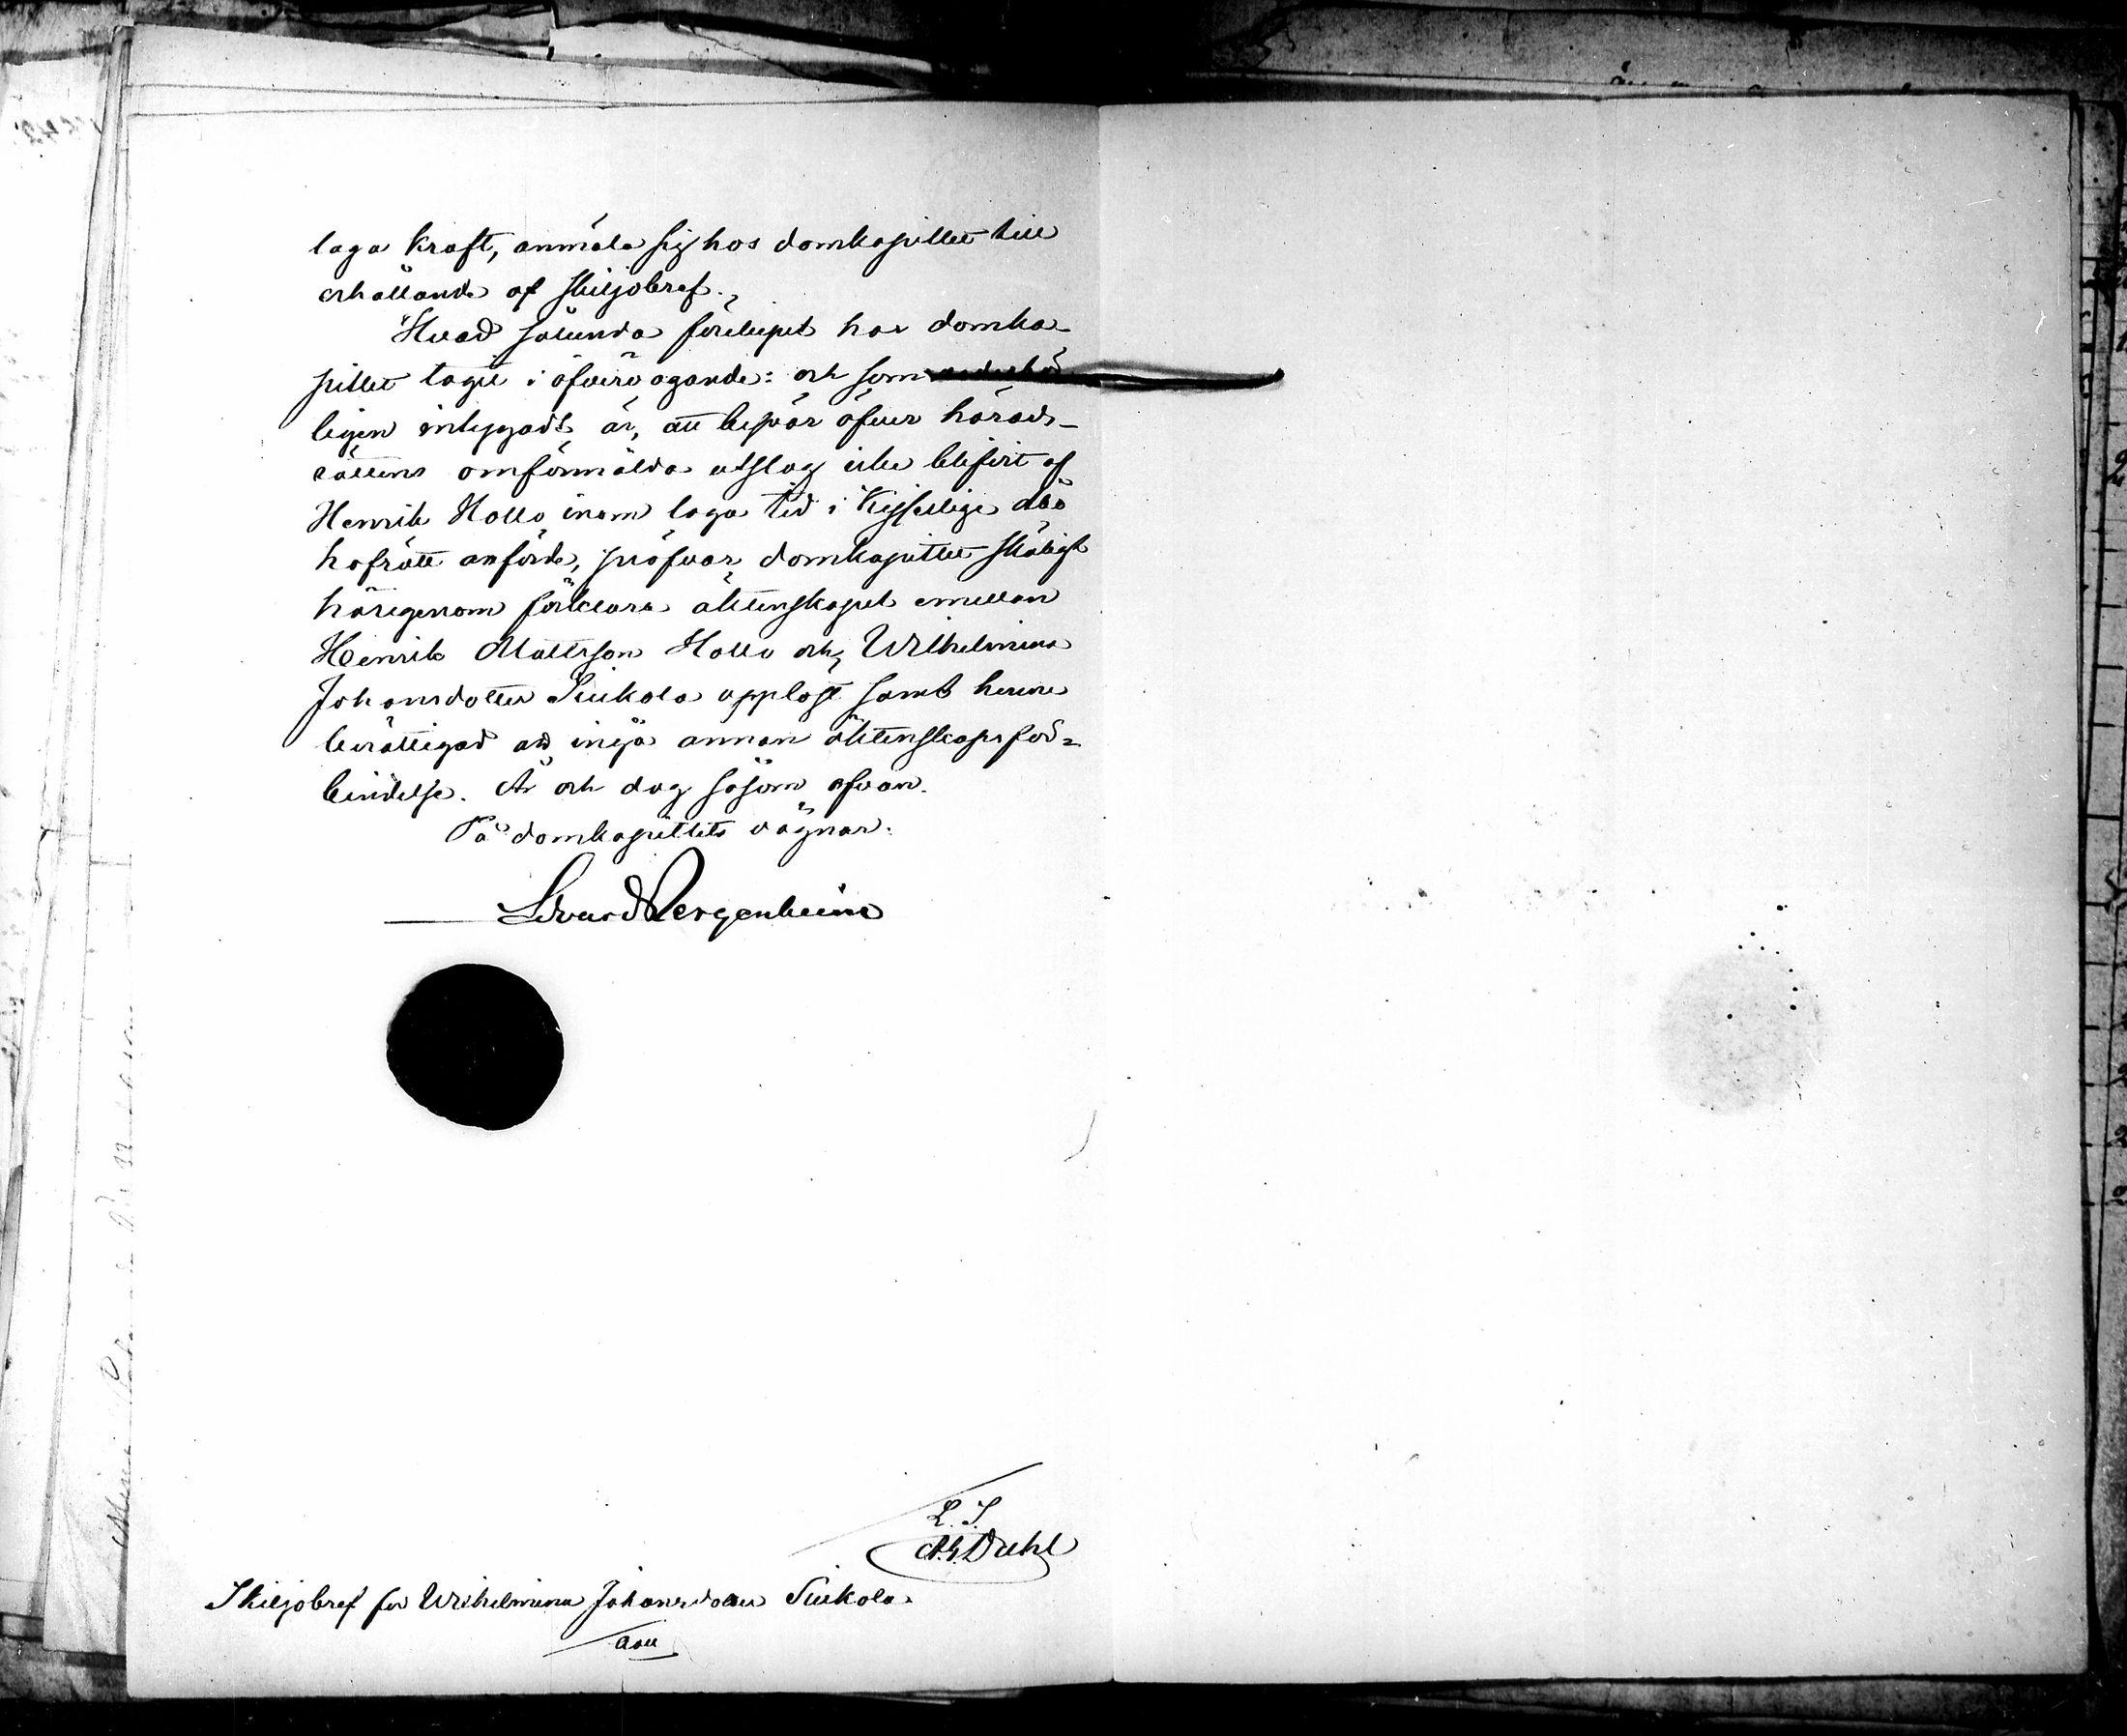 laga kraft, anmäla sig hos domkapitlet till
erhållande af skiljobref.
Hvad sålunda förelupit har domka-
pitlet tagit i öfvervägande: och som vederbör
ligen intygadt är, att besvär öfver härads-
rättens omförmälda utslag icke blifvit af
Henrik Hollo inom laga tid i Kejserliga Åbo
hofrätt anförde, pröfvar domkapitlet skäligt
härigenom förklara äktenskapet emellan
Henrik Mattsson Hollo och Wilhelmina
Johansdotter Siukola upplöst samt henne
berättigad att ingå annan äktenskapsför=
bindelse. År och dag såsom ofvan.
På domkapitlets vägnar:
Edvard Bergenheim
L. S.
Dahl
Skiljobref för Wilhelmina Johansdotter Siukola